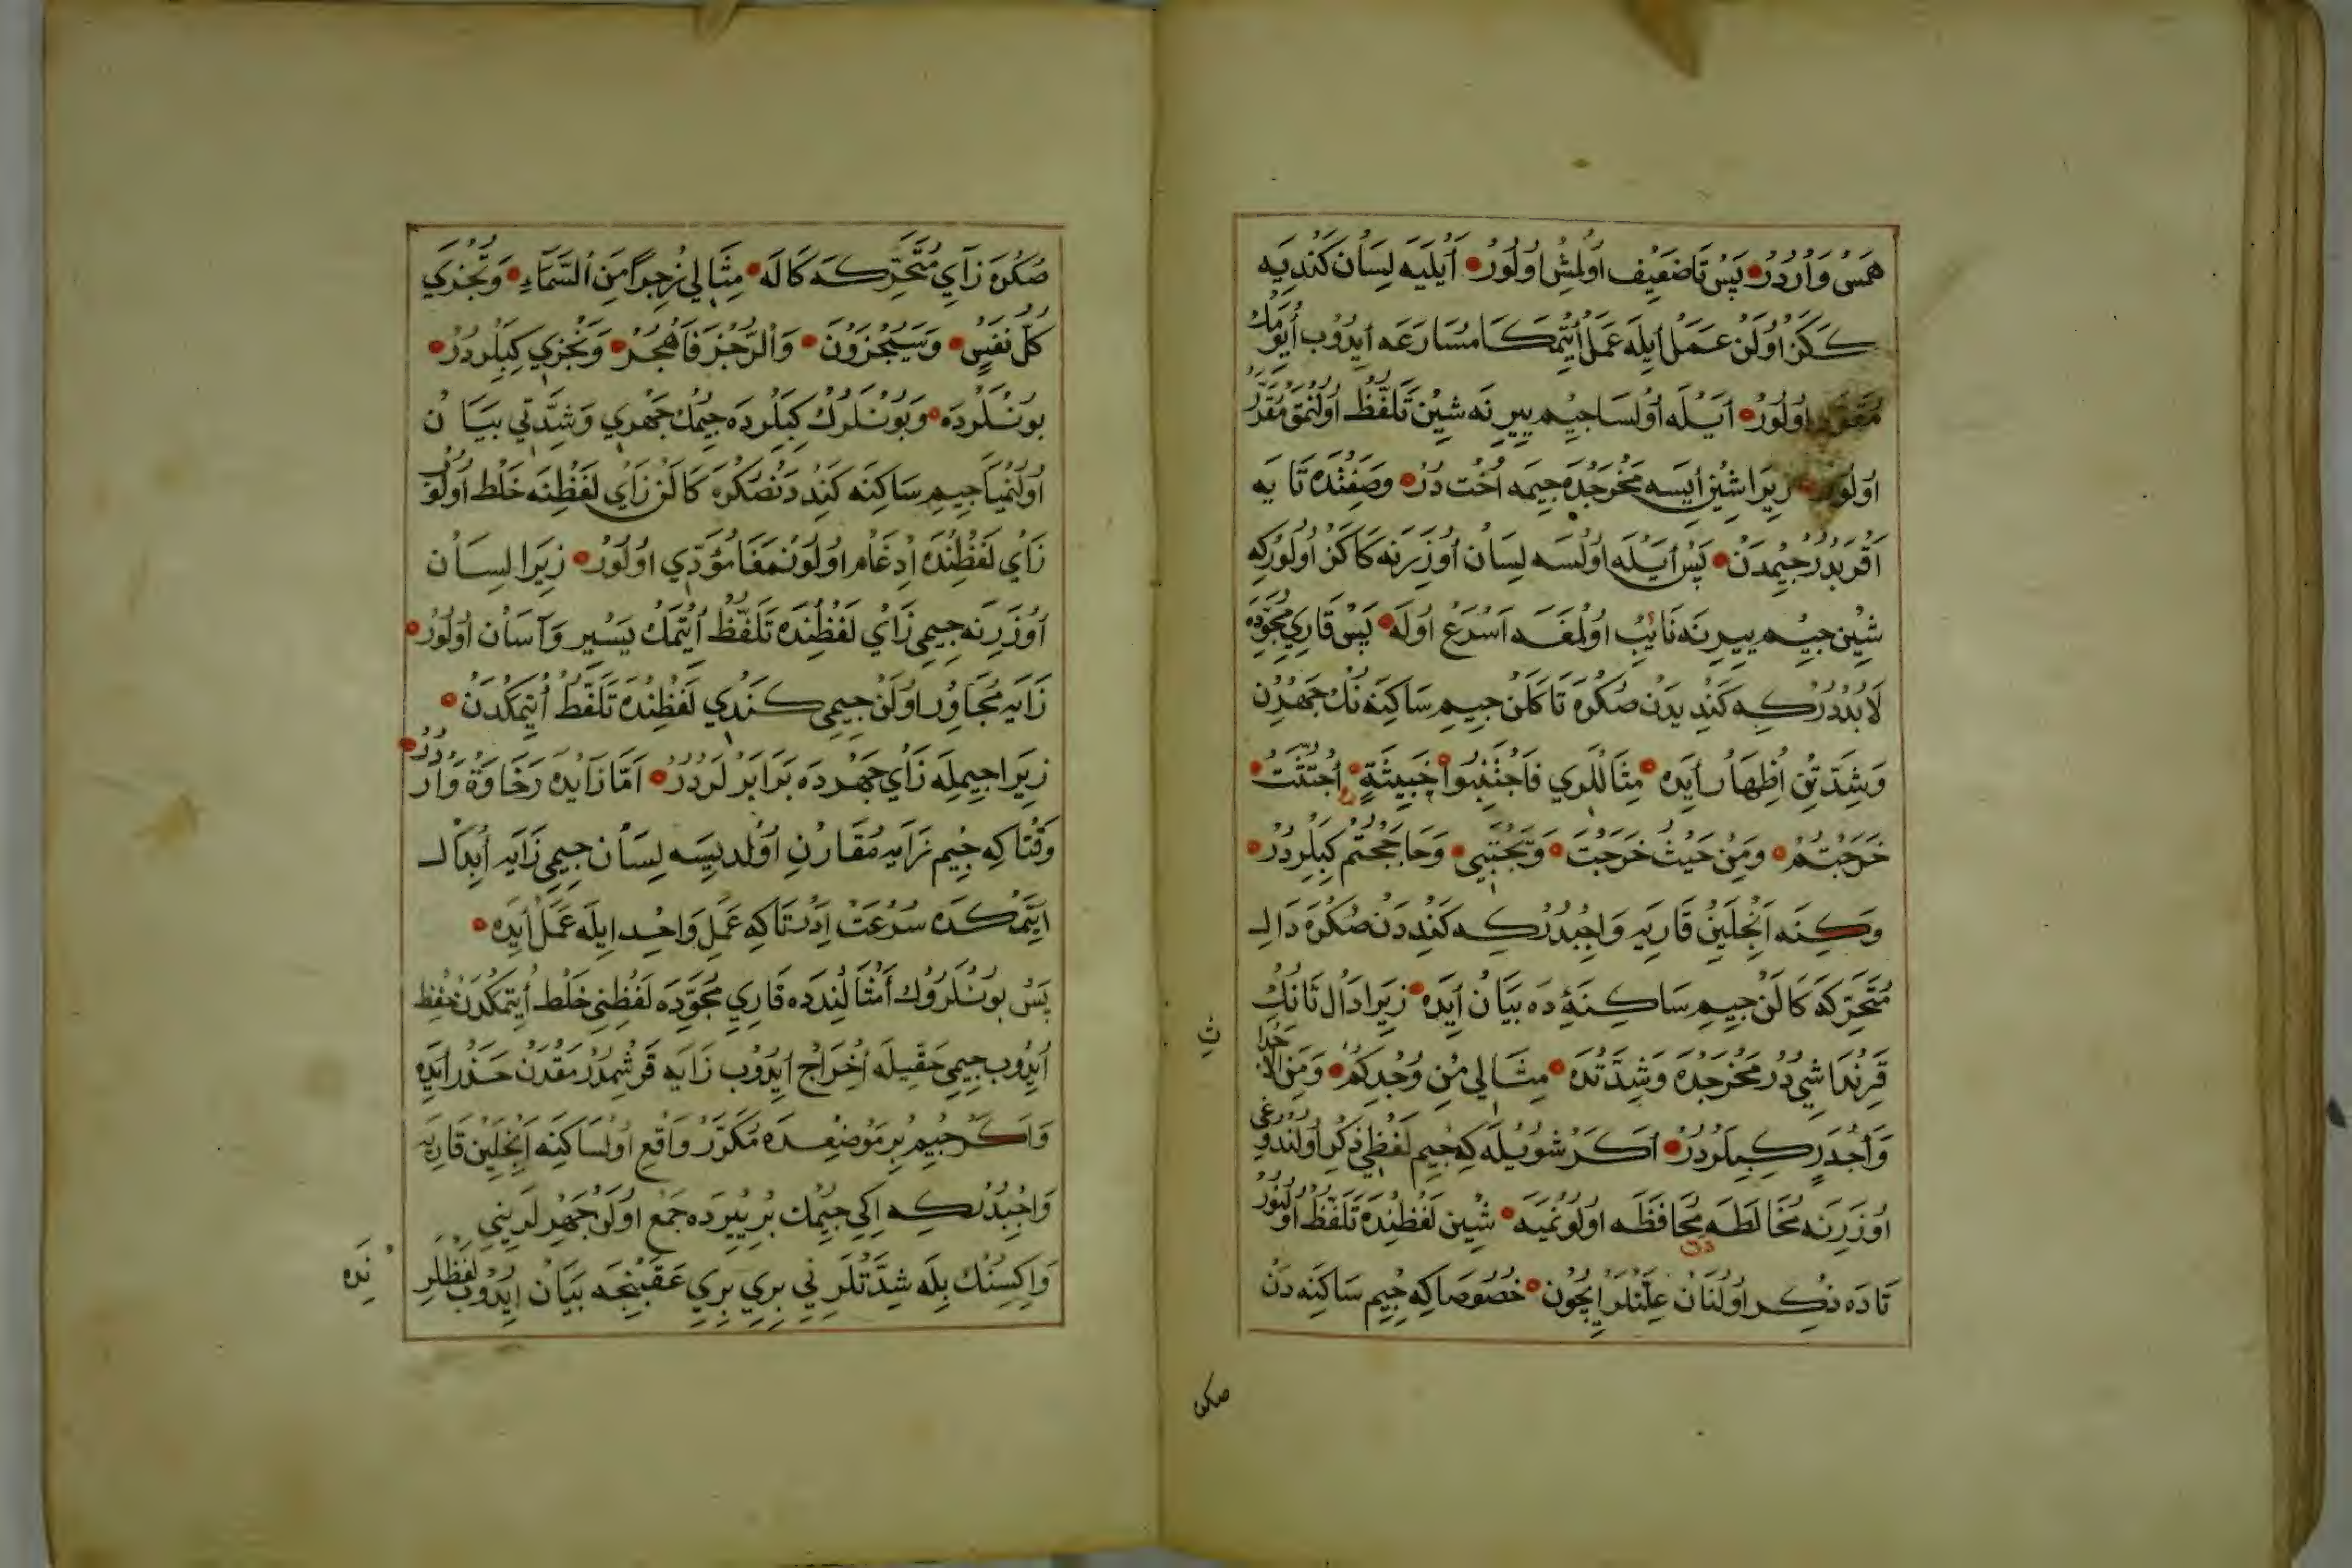 هَمَسْ وَارْدُرْ پَسْ تَا ضَعِيف اُولْمِشْ اُولُورْ اَيْلَيَه لِسَان كَنْدِيَه
كَكَنْ اُولَنْ عَمَلْ اَيلَه عَمَلْ اَيتْمَكَا مُسَارَعَه اَيدُوبْ اَيُومَك
مُقَرَّرْ اُولُورْ اَيْلَه اُولْسَا جِيْم يِيرِنَه شِيْن تَلَفُّظْ اُولُنْمَق مُقَرَّرْ
اُولُورْ زِيرَا شِيْن اَيسَه مَخْرَجْدَه جِيمَه اُخْت دُرْ وَصِفَتْدَه تَا يَه
اَقْرَبْدُرْ جِيْمْدَنْ پَسْ اَيْلَه اُولْسَه لِسَان اُوزَرِنَه كَاكَنْ اُولُورْ كِه
شِيْن جِيْم يِيرِنَه نَائِبْ اُولْمَغَه اَسْرَعْ اُولَه پَسْ قَارِي مُجَوِّدَه
لَابُدْدُرْكِه كَنْدِيدَنْ صُكْرَه تَا كَلَنْ جِيمِ سَاكِنَه نُكْ جَهْرِن
وَشِدَّتِن اِظْهَار اَيدَه مِثَاللَرِي فَاجْتَنِبُوا خَبِيثَةٍ اُجْتُثَّتْ
خَرَجْتُمْ وَمِنْ حَيْثُ خَرَجْتَ وَيَجْتَبِي وَحَاجَجْتُمْ كِبِلَرْدُرْ
وَكِنَه اَنْجِلَيِنْ قَارِيَه وَاجِبْدُرْكِه كَنْدِدَنْ صُكْرَه دَالِ
مُتَحَرِّكَه كَالَنْ جِيمِ سَاكِنَه دَه بَيَان اَيدَه زِيرَا دَال تَانُكْ
قَرِنْدَاشِي دُرْ مَخْرَجْدَه وَشِدَّتْدَه مِثَالِي مِنْ وُجْدِكُمْ وَمِنَ الْاَجْدَا
ثِ
وَاَجْدَرِ كِبِلَرْدُرْ اَكَرْ شُويْلَه كِه جِيْم لَفْظِي ذِكْر اُولُنْدُوغِي
اُوزَرِنَه مُخَالَطَه مُحَافَظَه اُولُونْمَيَه شِيْن لَفْظِنْدَه تَلَفُّظْ اُولُنُورْ
تَادَه ذِكْر اُولُنَانْ عِلَّتْلَرْ اِيچُون خُصُوصَا كِه جِيْم سَاكِنَه دَنْ
صكره
صُكْرَه زَايِ مُتَحَرِّكَه كَالَه مِثَالِي رِجْزًا مِنَ السَّمَاءِ وَتُجْزَي
كُلُّ نَفْسٍ وَسَيُجْزَوْنَ وَالرُّجْزَ فَاهْجُرْ وَنَجْزِي كِبِلَرْدُرْ
بُونْلَرْدَه وَبُونْلَرُكْ كِبِلَرْدَه جِيْمُكْ جَهْرِي وَشِدَّتِي بَيَان
اُولُنْمَيَا جِيمِ سَاكِنَه كَنْدِدَنْ صُكْرَه كَالَنْ زَايْ لَفْظِنَه خَلْط اُولُوبْ
زَايْ لَفْظِنْدَه اِدْغَام اُولُونْمَغَا مُؤَدِّي اُولُورْ زِيرَا لِسَان
اُوزَرِنَه جِيمِي زَايْ لَفْظِنْدَه تَلَفُّظْ اَيتْمَكْ يَسِير وَآسَان اُولُورْ
زَايَه مُجَاوِر اُولَنْ جِيمِي كَنْدِي لَفْظِنْدَه تَلَفُّظْ اَيتْمَكْدَنْ
زِيرَا جِيمِلَه زَايْ جَهْرْدَه بَرَابَرْلَرْدُرْ اَمَّا زَايدَه رَخَاوَة وَارْدُرْ
وَقْتَا كِه جِيْم زَايَه مُقَارِنِ اُولْدِيسَه لِسَان جِيمِي زَايَه اَبْدَال
اَيتْمَكْدَه سُرْعَتْ اِدَرْ تَاكِه عَمَلِ وَاحِدْ اِيلَه عَمَلْ اَيدَه
پَسْ بُونْلَرُوكْ اَمْثَالِنْدَه قَارِي مُجَوِّدَه لَفْظِنِي خَلْط اَيتْمَكْدَنْ حِفْظ
اَيدُوبْ جِيمِي حَقِّيلَه اِخْرَاجْ اَيدُوبْ زَايَه قَرِشْدُرْمَقْدَنْ حَذَرْ اَيدَه
وَاَكَرْ جِيْم بِرْ مَوْضِعْدَه مُكَرَّرْ وَاقِعْ اُولْسَا كِنَه اَنْجِلَيِنْ قَارِيَه
وَاجِبْدُرْكِه اِكِي جِيْمُكْ بِرْ يِيرْدَه جَمْع اُولَنْ جَهْرْلَرِينِي
وَاِكِسِنُكْ بِلَه شِدَّتْلَرِنِي بِرِي بِرِي عَقَبِنْجَه بَيَان اِيدُوبْ لَفْظْلَرِ
نِدَه